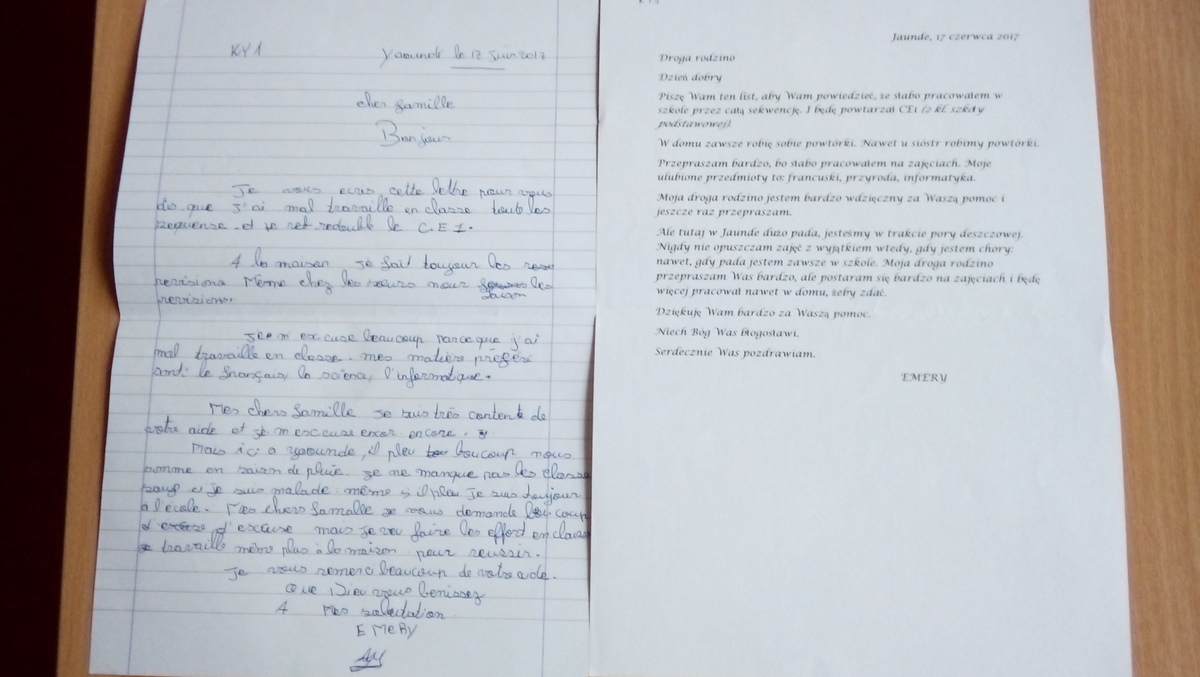 KY1
Yaoundé le 17 Juin 2017
cher famille
Bonjour
Je vous ecris cette lettre pour vous
dis que J'ai mal travaille en classe touts les
sequense. et je redouble le C.E1.
A la maison Je fait toujour les
revisions. Même chez les sœurs nour les
faison
revisions.
m'excuse beaucoup parce que j'ai
mal travaille en classe. mes matière préféré
sont: le français, la science, l'informatique.
Mes chers famille Je suis très content de
votre aide et Je m'excuse encore.
Mais ici a yaounde, il pleu boucoup nous
somme en saison de pluie. Je ne manque pas les classe
sauf si je suis malade même s'il pleu Je suis toujour
à l'école. Mes chers famille je vous demande
d'excuse mais Je veu faire les effort en classe
je travaille même plus à la maison pour reussir.
Je vous remerci beaucoup de votre aide.
Que Dieu vous benissez
A Mes salutation
EMeRy
Jaunde, 17 czerwca 2017
Droga rodzino
Dzień dobry
Piszę Wam ten list, aby Wam powiedzieć, że słabo pracowałem w
szkole przez całą sekwencję. I będę powtarzał CE1 (2 kl. szkoły
podstawowej)
W domu zawsze robię sobie powtórki. Nawet u sióstr robimy powtórki.
Przepraszam bardzo, bo słabo pracowałem na zajęciach. Moje
ulubione przedmioty to: francuski, przyroda, informatyka.
Moja droga rodzino jestem bardzo wdzięczny za Waszą pomoc i
jeszcze raz przepraszam.
Ale tutaj w Jaunde dużo pada, jesteśmy w trakcie pory deszczowej.
Nigdy nie opuszczam zajęć z wyjątkiem wtedy, gdy jestem chory:
nawet, gdy pada jestem zawsze w szkole. Moja droga rodzino
przepraszam Was bardzo, ale postaram się bardzo na zajęciach i będę
więcej pracował nawet w domu, żeby zdać.
Dziękuję Wam bardzo za Waszą pomoc.
Niech Bóg Was błogosławi.
Serdecznie Was pozdrawiam.
EMERY